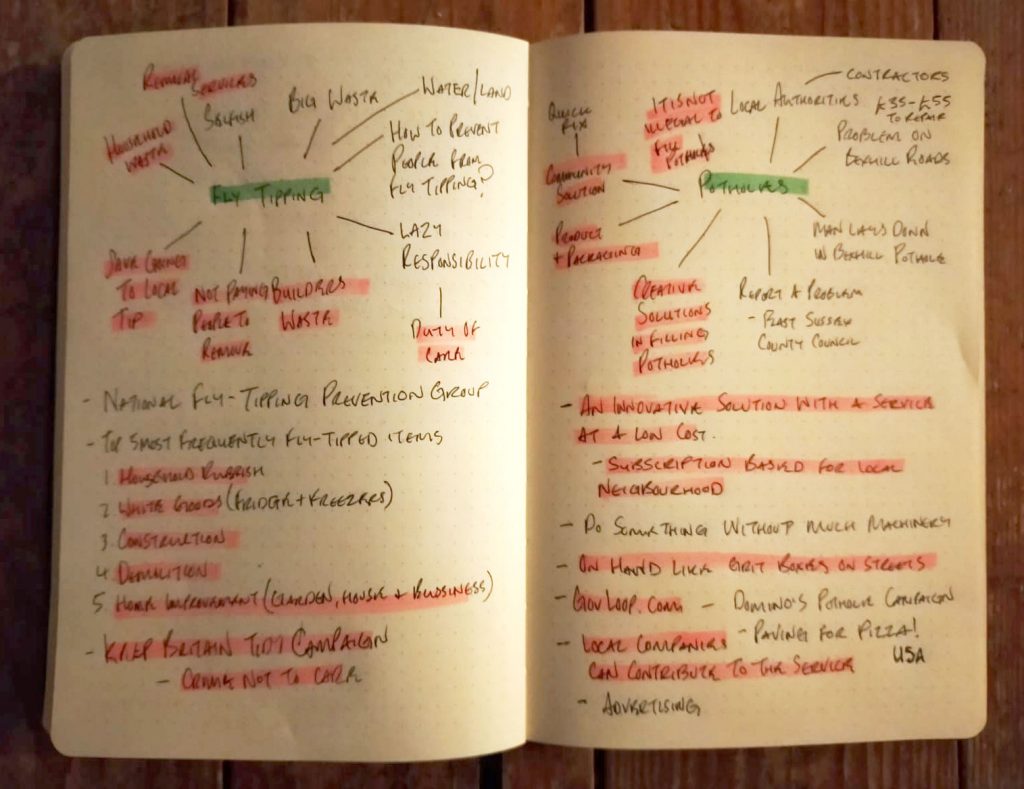 REMOVAL
SERVICES
SELFISH
BIG WASTE
WATER/LAND
HOUSEHOLD
WASTE
HOW TO PREVENT
PEOPLE FROM
FLY TIPPING?
FLY TIPPING
LAZY
RESPONSIBILITY
DUTY OF
CARE
TO LOCAL
TIP
NOT PAYING
PEOPLE TO
REMOVE
BUILDERS
WASTE
- NATIONAL FLY-TIPPING PREVENTION GROUP
- TOP 5 MOST FREQUENTLY FLY-TIPPED ITEMS
1. HOUSEHOLD RUBBISH
2. WHITE GOODS (FRIDGE + FREEZERS)
3. CONSTRUCTION
4. DEMOLITION
5. HOME IMPROVEMENT (GARDEN, HOUSE + BUSINESS)
- KEEP BRITAIN TIDY CAMPAIGN
- CRIME NOT TO CARE
QUICK
FIX
IT IS NOT
ILLEGAL TO
FILL
POTHOLES
LOCAL AUTHORITIES
CONTRACTORS
£35-£55
TO REPAIR
PROBLEM ON
BEXHILL ROADS
COMMUNITY
SOLUTION
POTHOLES
PRODUCT
+ PACKAGING
MAN LAYS DOWN
IN BEXHILL POTHOLE
CREATIVE
SOLUTIONS
IN FILLING
POTHOLES
REPORT A PROBLEM
- EAST SUSSEX
COUNTY COUNCIL
- AN INNOVATIVE SOLUTION WITH A SERVICE
AT A LOW COST.
- SUBSCRIPTION BASED FOR LOCAL
NEIGHBOURHOOD
- DO SOMETHING WITHOUT MUCH MACHINERY
- ON HAND LIKE GRIT BOXES ON STREETS
- GOVLOOP.COM - DOMINO'S POTHOLE CAMPAIGN
- PAVING FOR PIZZA!
USA
- LOCAL COMPANIES
CAN CONTRIBUTE TO THE SERVICE
- ADVERTISING